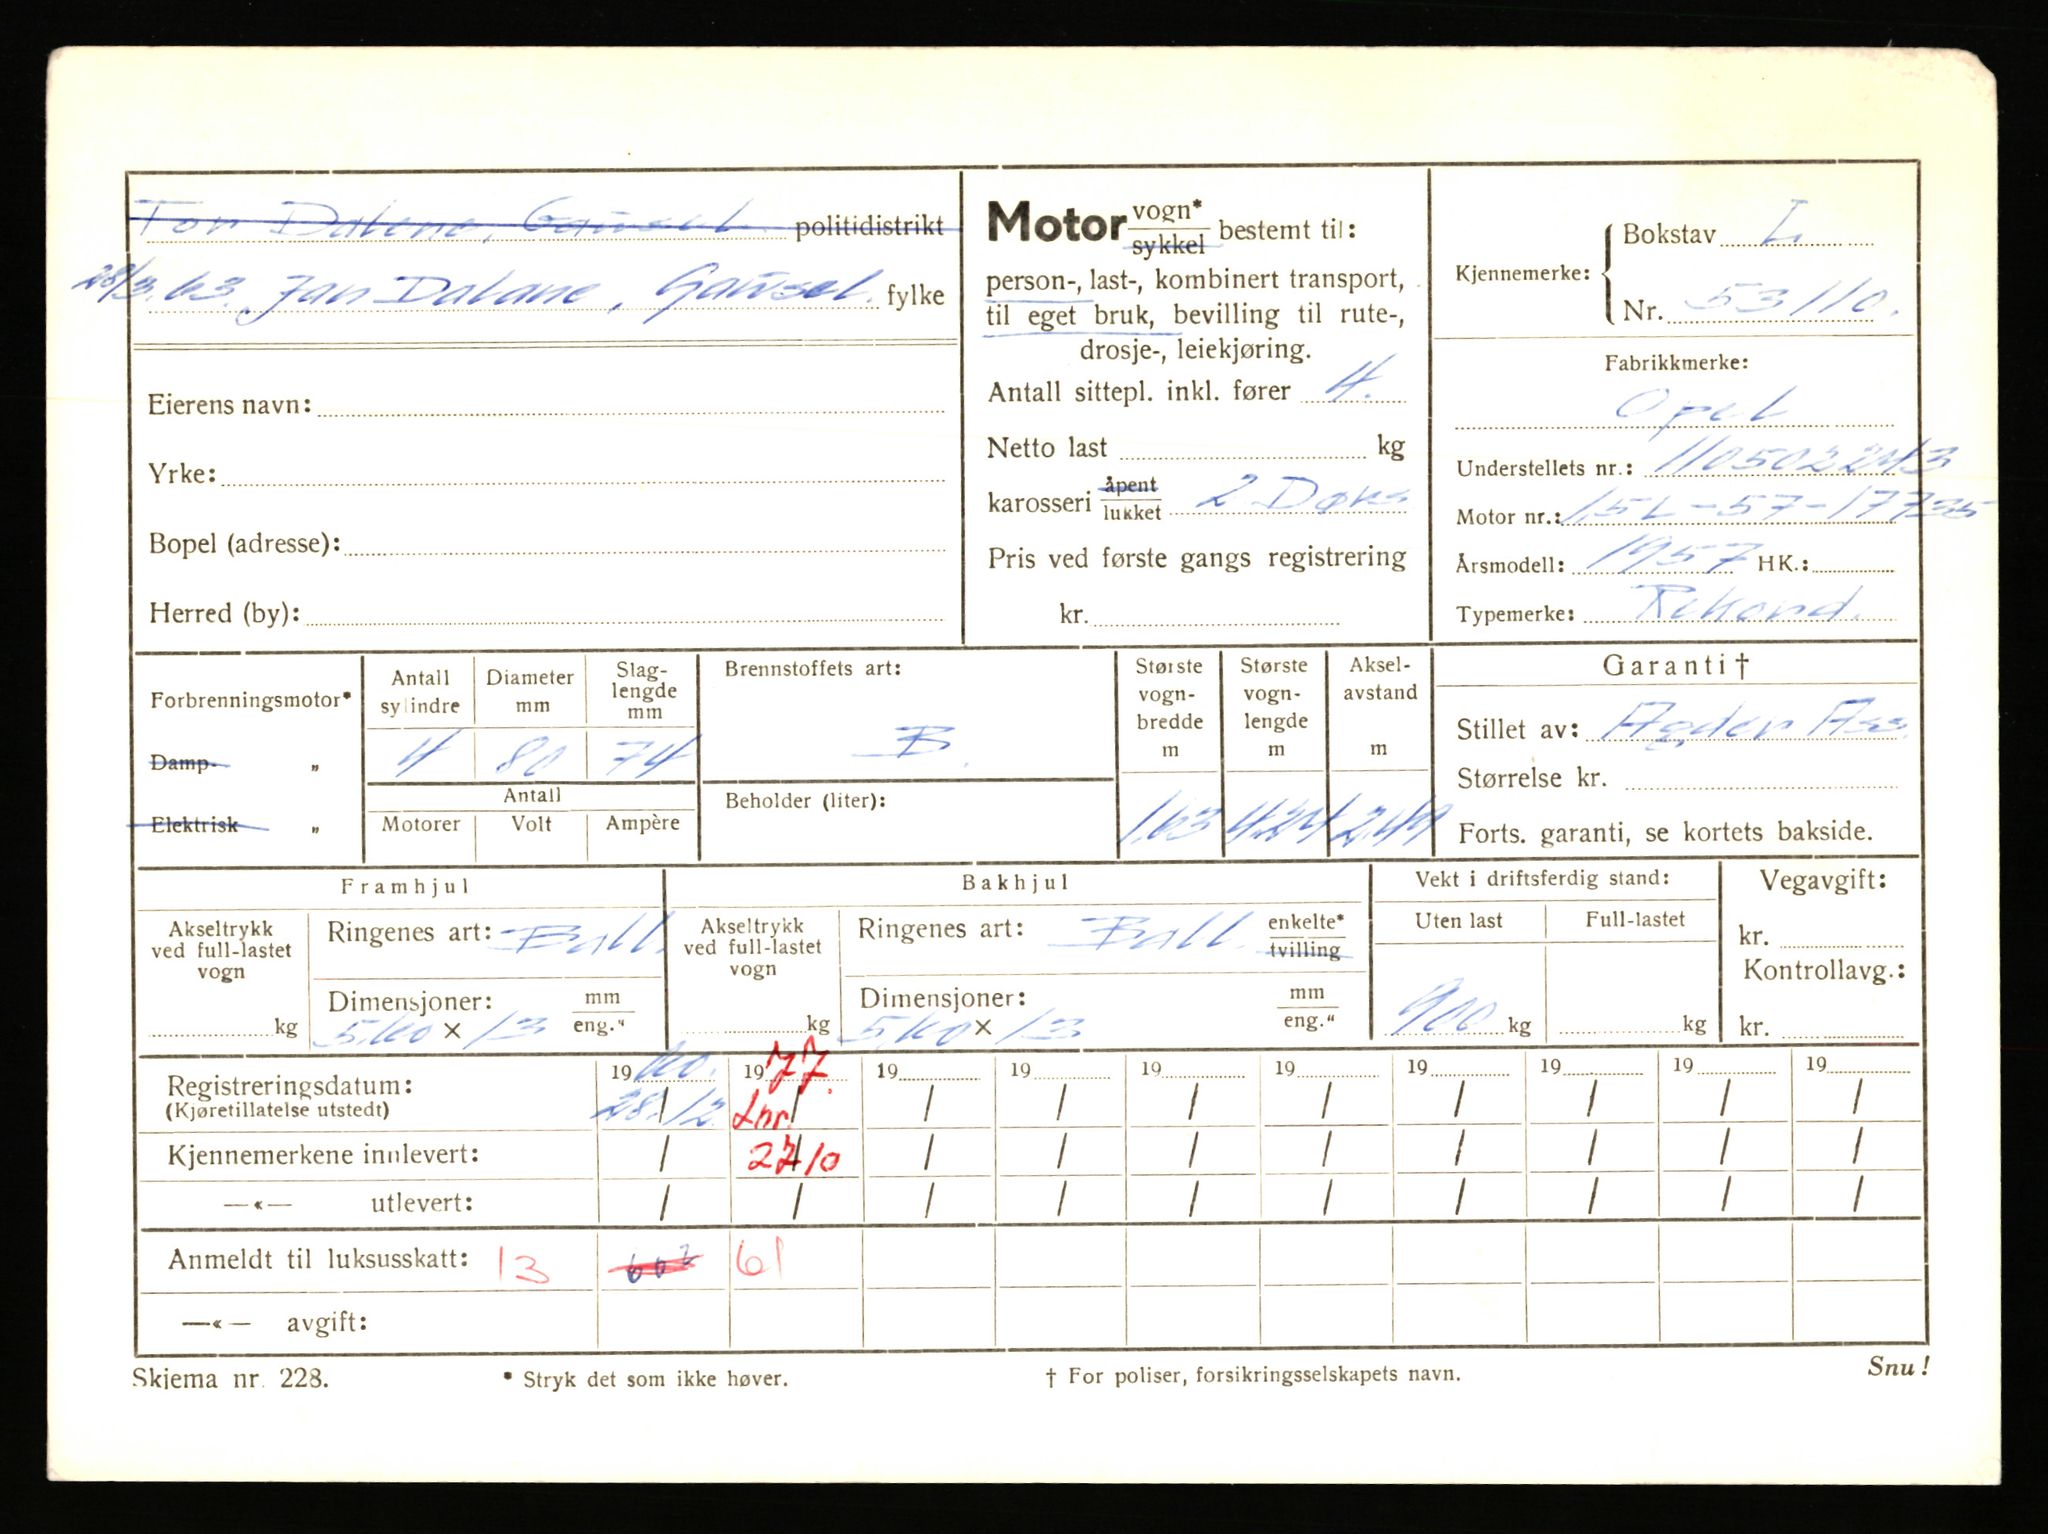 Tor Dalene, Gausel politidistrikt
28/3.63. Jan Dalane, Gausel. fylke
Eierens navn:
Yrke:
Bopel (adresse):
Herred (by):
Motor vogn* sykkel bestemt til:
person-, last-, kombinert transport,
til eget bruk, bevilling til rute-,
drosje-, leiekjøring.
Antall sittepl. inkl. fører 4.
Netto last kg
karosseri åpent lukket 2 Dørs
Pris ved første gangs registrering
kr.
Kjennemerke: Bokstav L
Nr. 53110.
Fabrikkmerke:
Opel
Understellets nr.: 110502243
Motor nr.: 15L-57-17735
Årsmodell: 1957 HK.:
Typemerke: Rekord.
Forbrenningsmotor*
Damp- „
Elektrisk „
Antall sylindre
4
Diameter mm
80
Slag-lengde mm
74
Antall
Motorer Volt Ampère
Brennstoffets art:
B.
Beholder (liter):
Største vogn-bredde m
1.63
Største vogn-lengde m
4.24
Aksel-avstand m
2.49
Garanti †
Stillet av: Agder Ass.
Størrelse kr.
Forts. garanti, se kortets bakside.
Framhjul
Akseltrykk ved full-lastet vogn
kg
Ringenes art: Ball.
Dimensjoner: mm eng."
5.60 × 13
Bakhjul
Akseltrykk ved full-lastet vogn
kg
Ringenes art: Ball. enkelte* tvilling
Dimensjoner: mm eng."
5.60 × 13
Vekt i driftsferdig stand:
Uten last Full-lastet
900 kg kg
Vegavgift:
kr.
Kontrollavg.:
kr.
Registreringsdatum: 1960. 1977. 19 19 19 19 19 19 19 19
(Kjøretillatelse utstedt) 28/12. Lnr. / / / / / / / /
Kjennemerkene innlevert: / 2710 / / / / / / / /
—«— utlevert: / / / / / / / / / /
Anmeldt til luksusskatt: 13 61
—«— avgift:
Skjema nr. 228. * Stryk det som ikke høver. † For poliser, forsikringsselskapets navn. Snu!